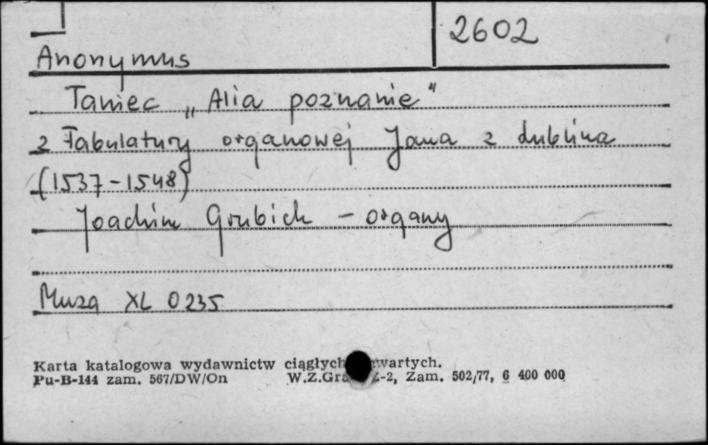 2602
Anonymus
Taniec „Alia poznanie"
z Tabulatury organowej Jana z Lublina
(1537-1548)
Joachim Grubich - organy
Muza XL 0235
Karta katalogowa wydawnictw ciągłych wartych.
Pu-B-144 zam. 567/DW/On W.Z.Gra Z-2, Zam. 502/77, 6 400 000